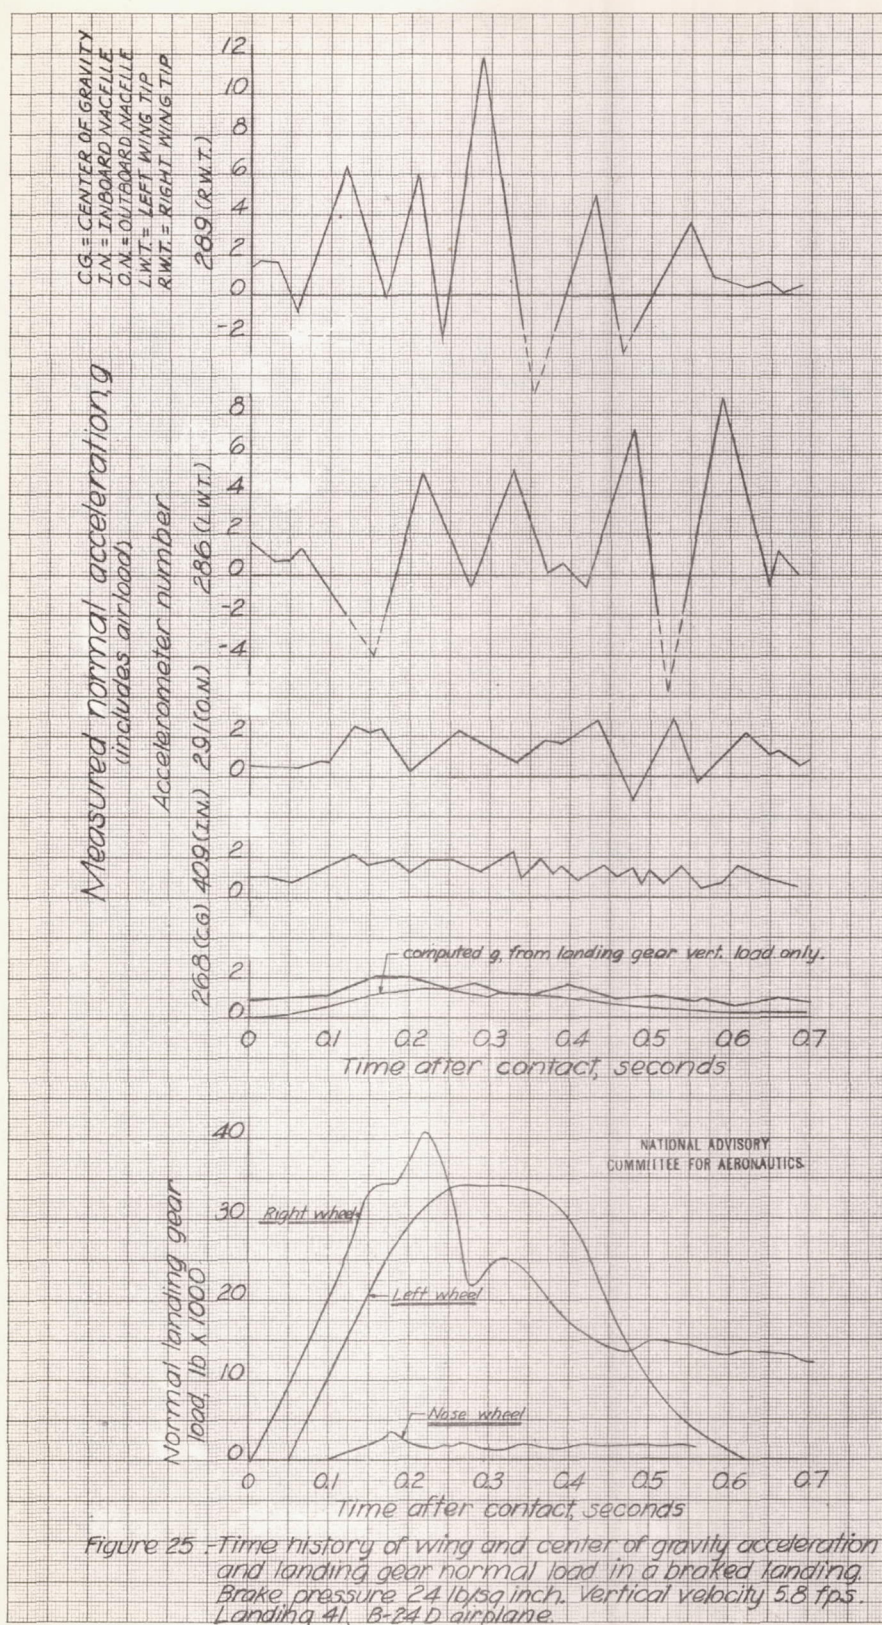 C.G. = CENTER OF GRAVITY
I.N. = INBOARD NACELLE
O.N. = OUTBOARD NACELLE
L.W.T. = LEFT WING TIP
R.W.T. = RIGHT WING TIP
Measured normal acceleration, g
(includes airload)
Accelerometer number
289 (R.W.T.)
12
10
8
6
4
2
0
-2
286 (L.W.T.)
8
6
4
2
0
-2
-4
291 (O.N.)
2
0
409 (I.N.)
2
0
268 (CG)
2
0
computed g, from landing gear vert. load only.
0 0.1 0.2 0.3 0.4 0.5 0.6 0.7
Time after contact, seconds
NATIONAL ADVISORY
COMMITTEE FOR AERONAUTICS
Normal landing gear
load, lb x 1000
40
30
20
10
0
Right wheel
Left wheel
Nose wheel
0 0.1 0.2 0.3 0.4 0.5 0.6 0.7
Time after contact, seconds
Figure 25 .-Time history of wing and center of gravity acceleration
and landing gear normal load in a braked landing.
Brake pressure 24 lb/sq inch. Vertical velocity 5.8 fps.
Landing 41, B-24D airplane.